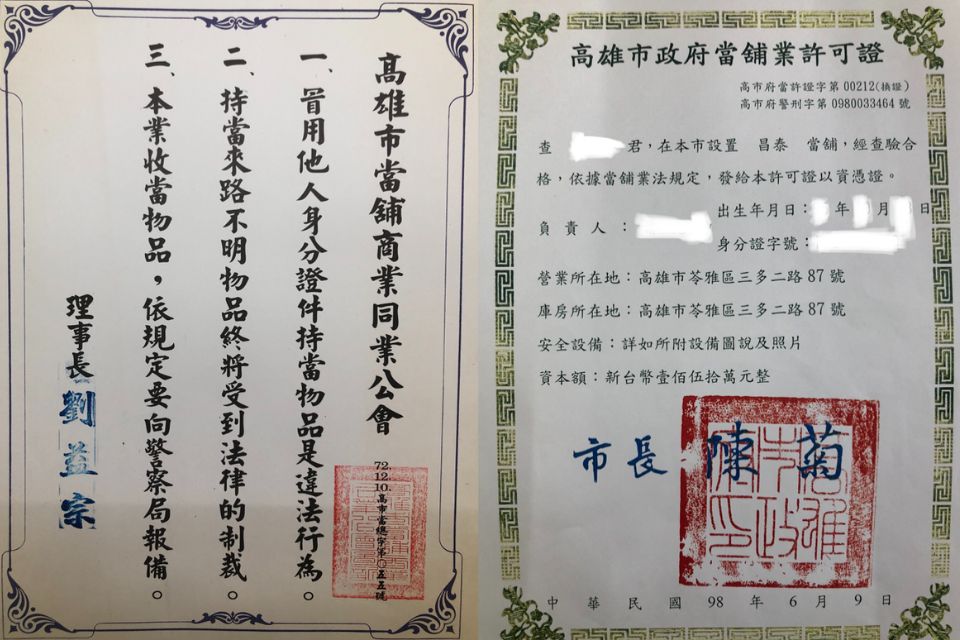 高雄市當舖商業同業公會
一、冒用他人身分證件持當物品是違法行為。
二、持當來路不明物品終將受到法律的制裁。
三、本業收當物品，依規定要向警察局報備。
理事長 劉益宗
72.12.10.高市當總字第〇五五號
高雄市政府當舖業許可證
高市府當許證字第00212(換證)
高市府警刑字第0980033464號
查 君，在本市設置 昌泰 當舖，經查驗合
格，依據當舖業法規定，發給本許可證以資憑證。
負責人：
出生年月日： 年 月 日
身分證字號：
營業所在地：高雄市苓雅區三多二路87號
庫房所在地：高雄市苓雅區三多二路87號
安全設備：詳如所附設備圖說及照片
資本額：新台幣壹佰伍拾萬元整
市長 陳菊
高雄市政府印
中華民國98年6月9日